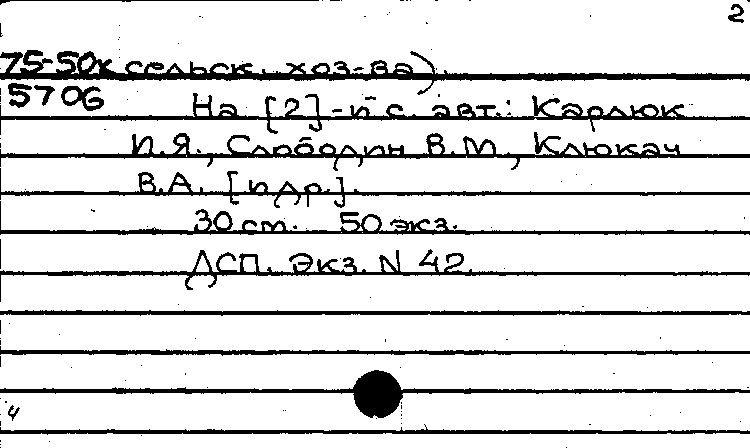 2
75-50к сельск. хоз-ва).
5706 На [2]-й с. авт.: Карлюк
И.Я., Слободин В.М., Клюкач
В.А. [и др.].
30 см. 50 экз.
ДСП. Экз. N 42.
4